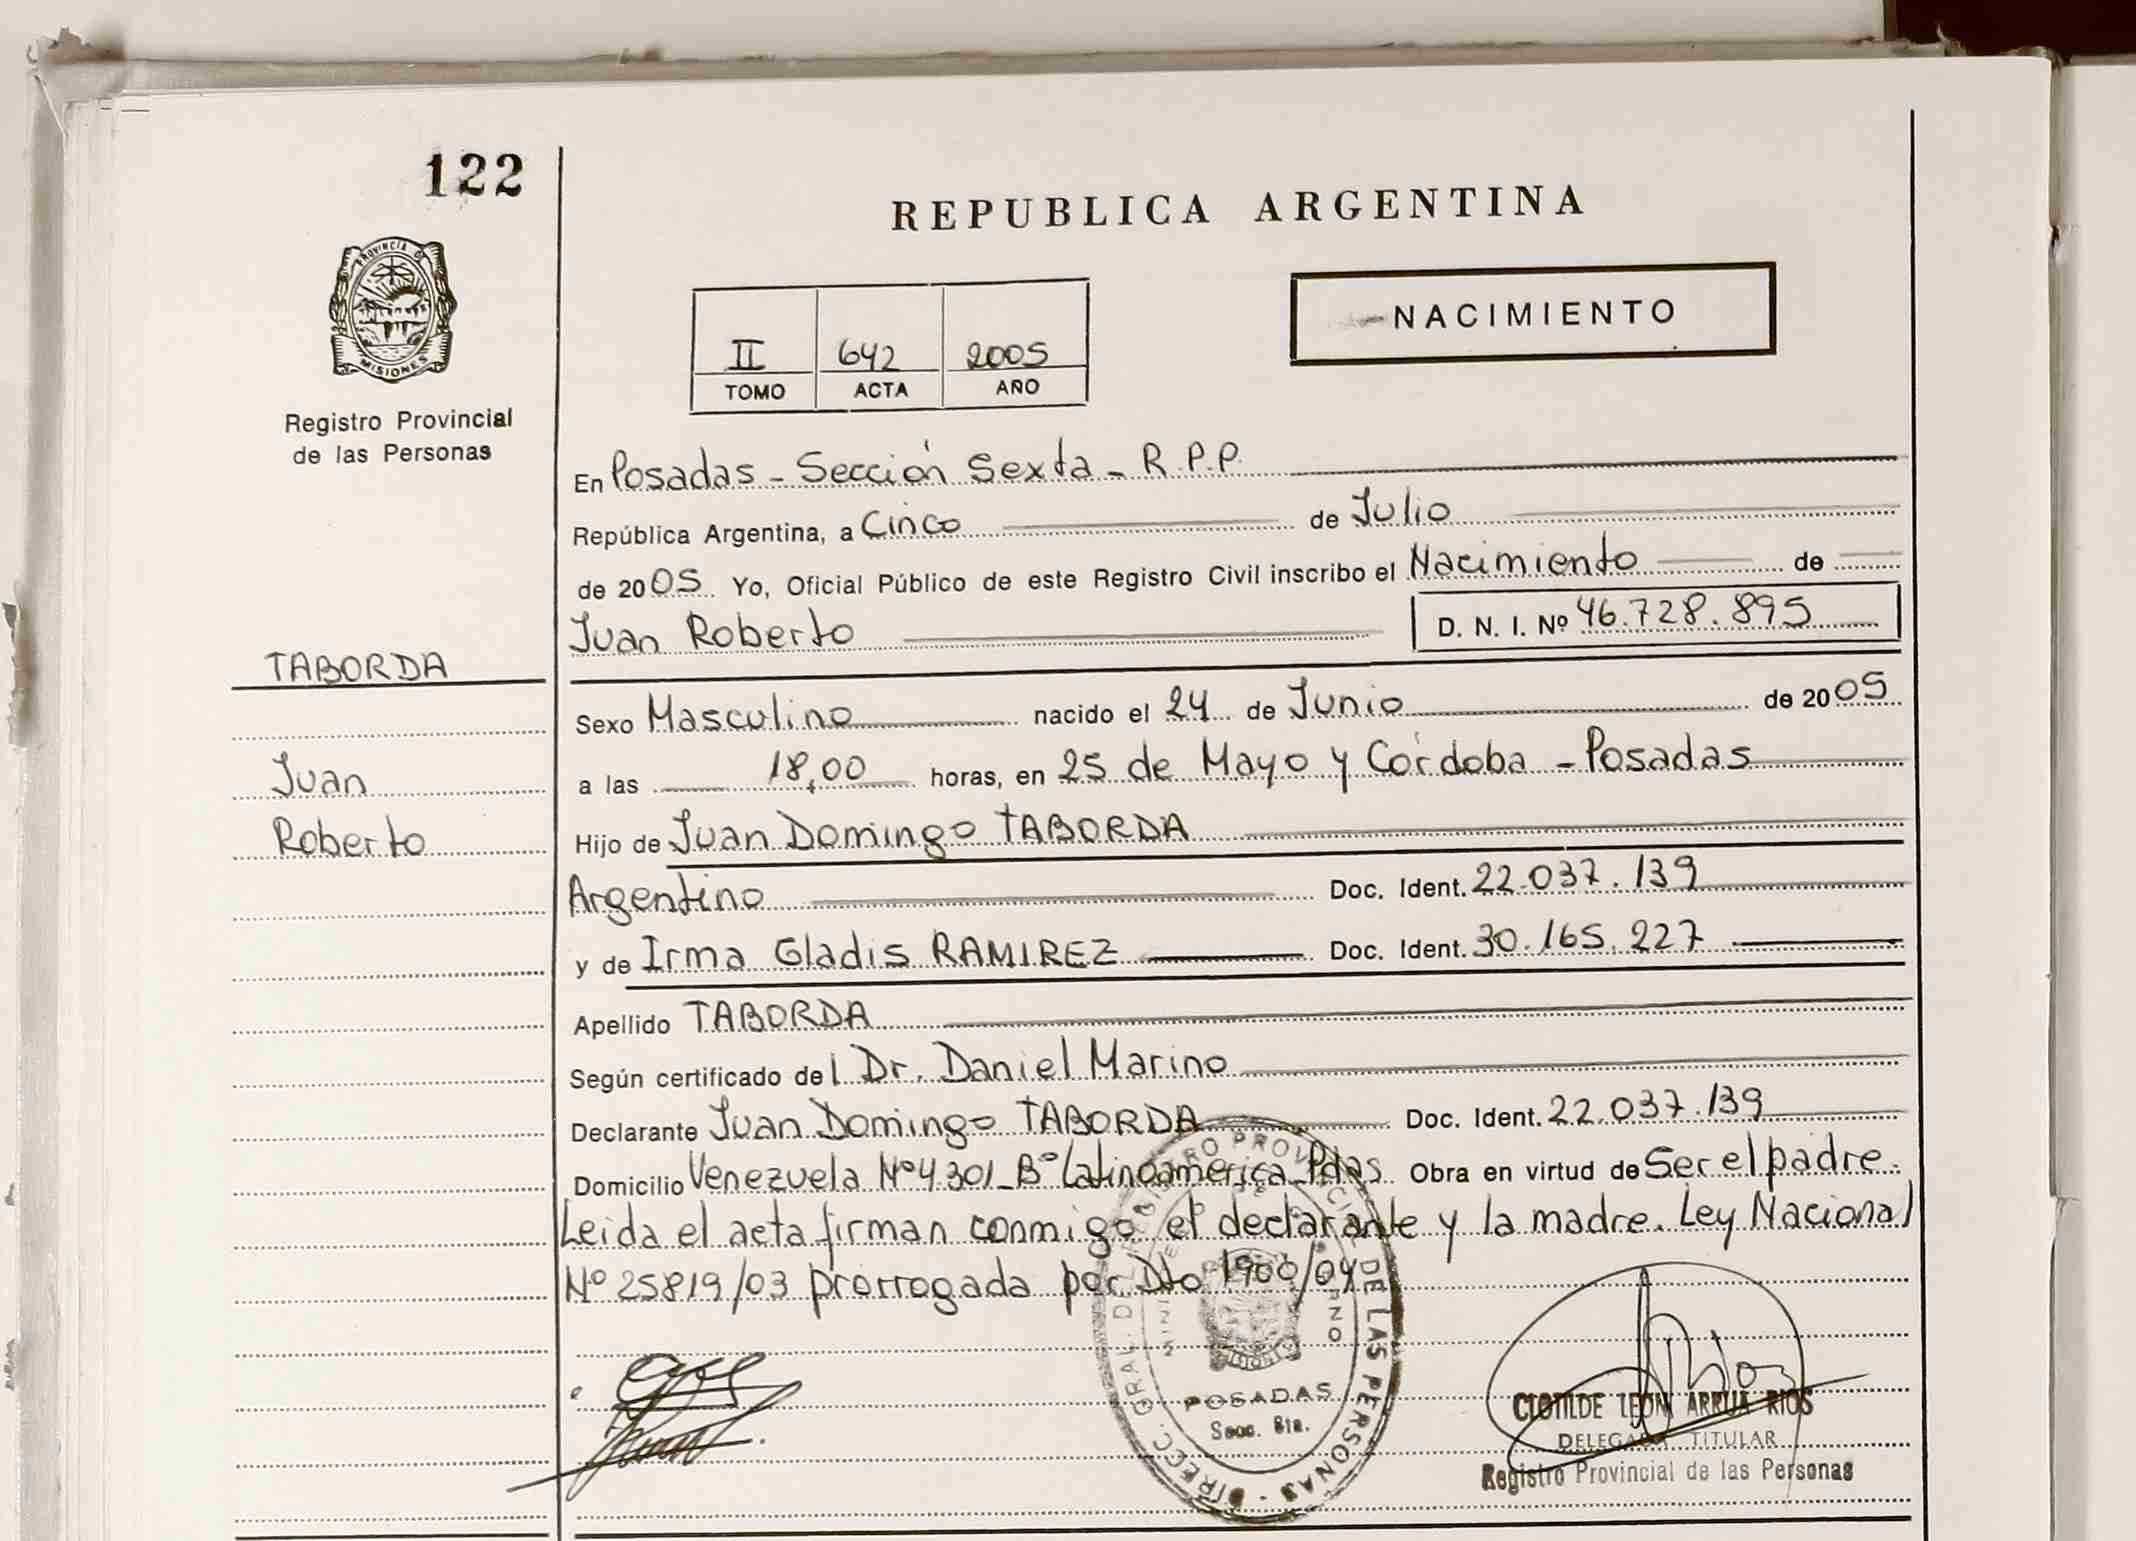 122
REPUBLICA ARGENTINA
PROVINCIA D
MISIONES
Registro Provincial
de las Personas
NACIMIENTO
II 642 2005
TOMO ACTA AÑO
En Posadas - Sección Sexta - R.P.P.
República Argentina, a Cinco de Julio
de 2005 Yo, Oficial Público de este Registro Civil inscribo el Nacimiento de
Juan Roberto D. N. I. Nº 46.728.895
TABORDA
Sexo Masculino nacido el 24 de Junio de 2005
Juan
a las 18,00 horas, en 25 de Mayo y Córdoba - Posadas
Roberto
Hijo de Juan Domingo TABORDA
Argentino Doc. Ident. 22.037.139
y de Irma Gladis RAMIREZ Doc. Ident. 30.165.227
Apellido TABORDA
Según certificado del Dr. Daniel Marino
Declarante Juan Domingo TABORDA Doc. Ident. 22.037.139
Domicilio Venezuela Nº 4301 - Bº Latinoamérica - Pdas Obra en virtud de Ser el padre.
Leida el acta firman conmigo el declarante y la madre. Ley Nacional
Nº 25819/03 prorrogada por Dto 1900/04
DIRECC. GRAL. DEL REGISTRO PROVINCIAL DE LAS PERSONAS
POSADAS
Secc. 6ta.
CLOTILDE LEON ARRUA RIOS
DELEGADA TITULAR
Registro Provincial de las Personas